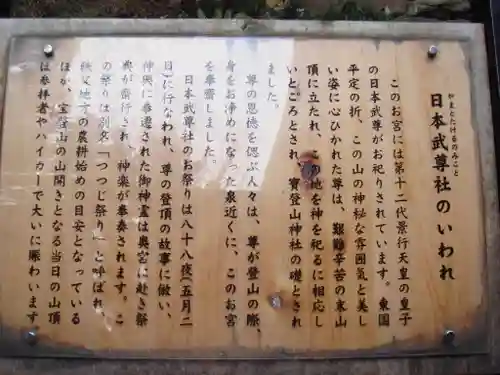 やまとたけるのみこと
日本武尊社のいわれ
このお宮には第十二代景行天皇の皇子
の日本武尊がお祀りされています。東国
平定の折、この山の神秘な雰囲気と美し
い姿に心ひかれた尊は、艱難辛苦の末山
頂に立たれ、この地を神を祀るに相応し
いところとされ、寶登山神社の礎とされ
ました。
尊の恩徳を偲ぶ人々は、尊が登山の際、
身をお浄めになった泉近くに、このお宮
を奉齋しました。
日本武尊社のお祭りは八十八夜（五月二
日）に行なわれ、尊の登頂の故事に倣い、
神輿に奉遷された御神霊は奥宮に赴き祭
典が斎行され、神楽が奉奏されます。こ
の祭りは別名「つつじ祭り」と呼ばれ、
秩父地方の農耕始めの目安となっている
ほか、宝登山の山開きとなる当日の山頂
は参拝者やハイカーで大いに賑わいます